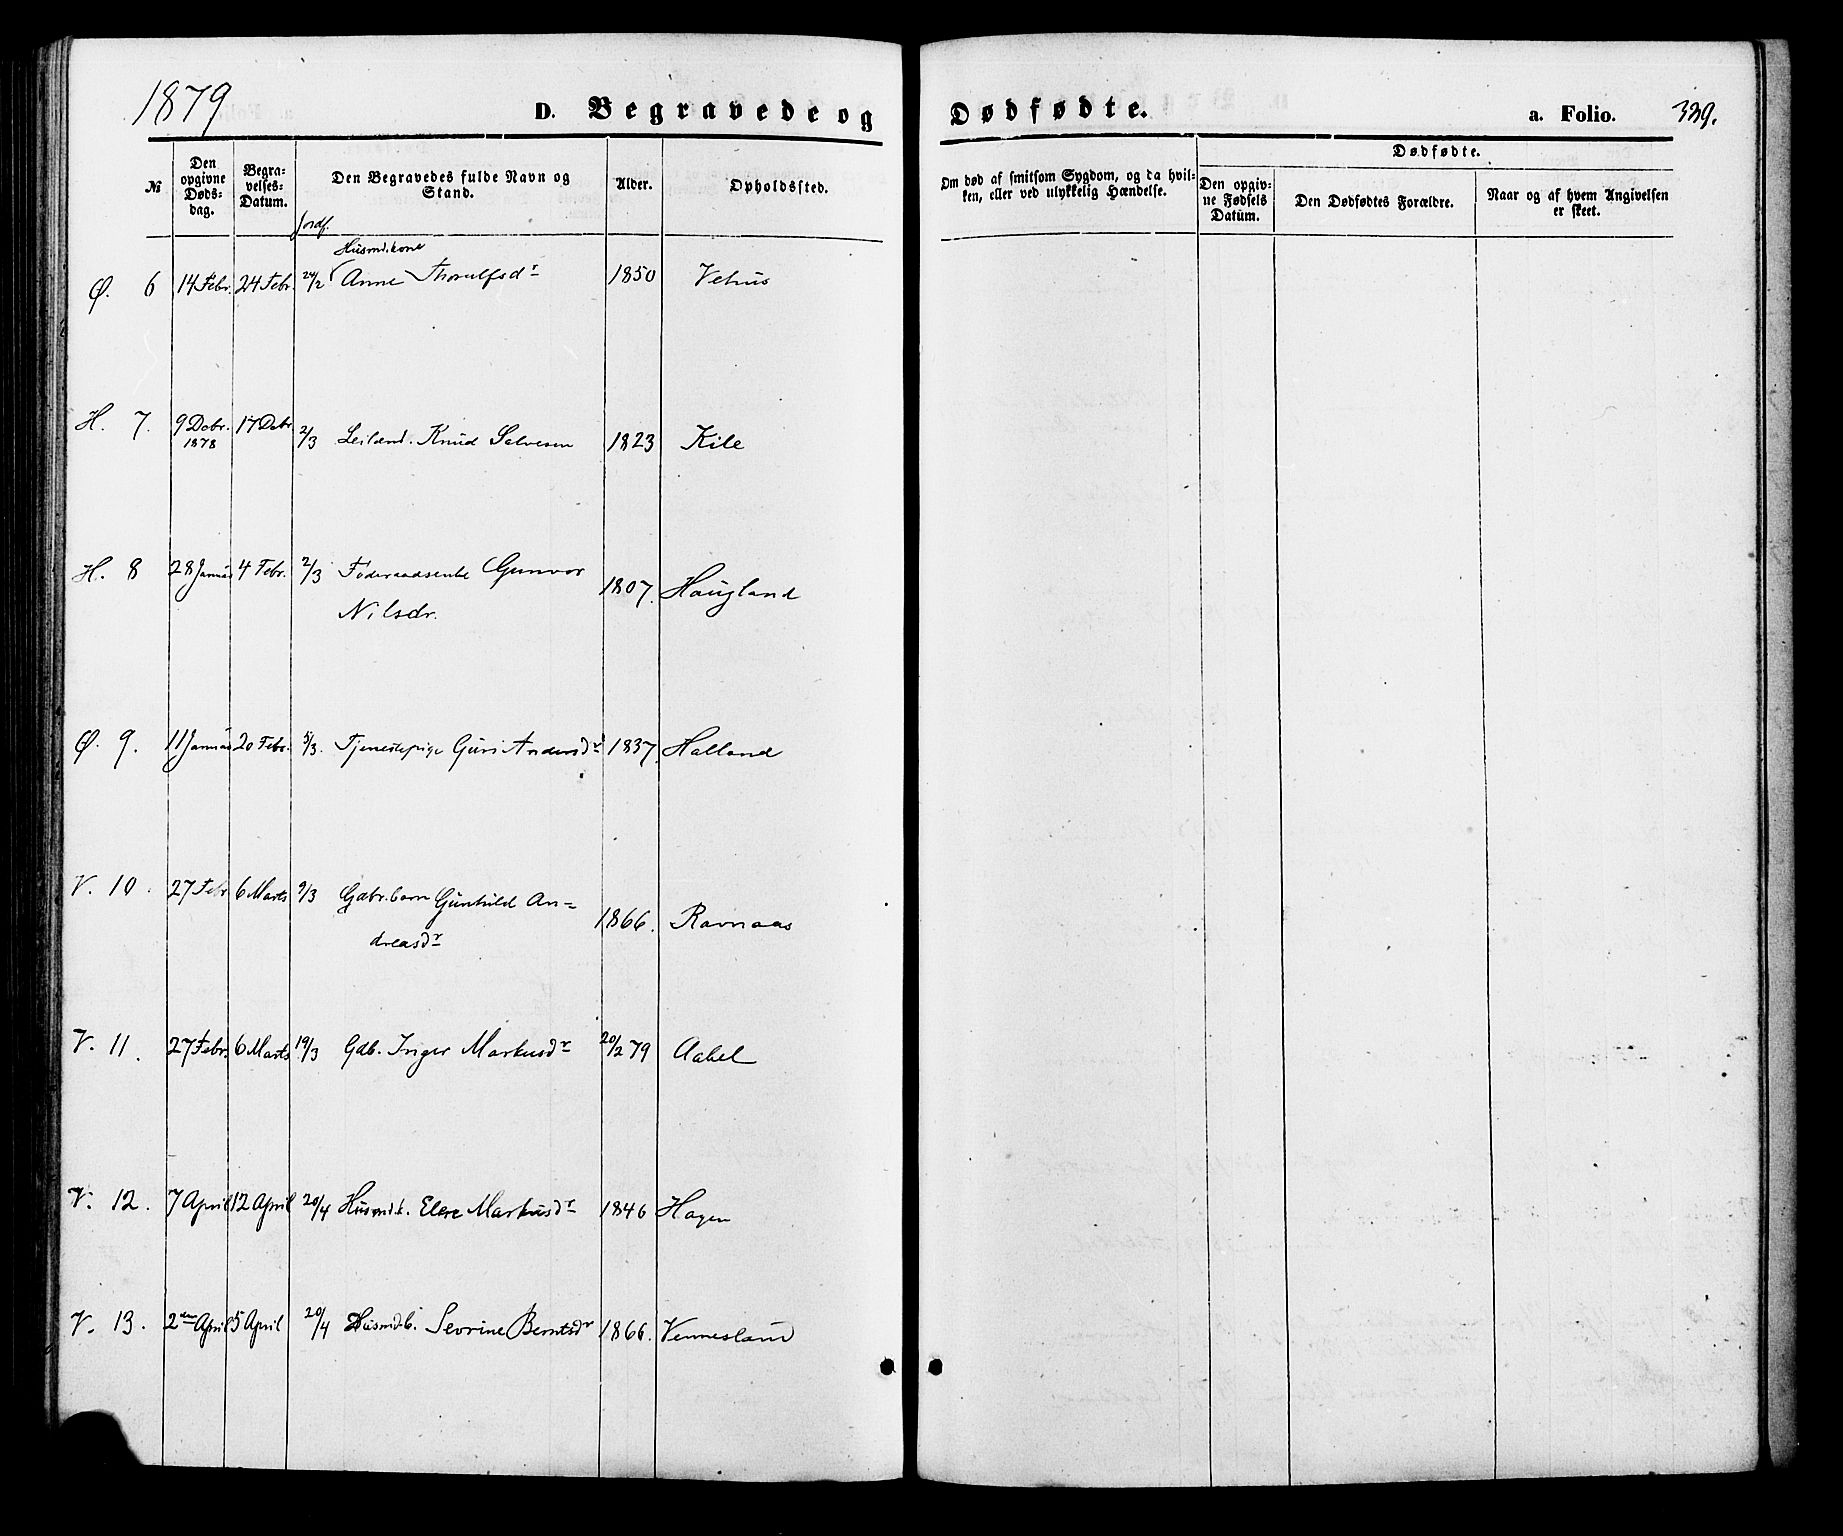 1879 D. Begravede og Dødfødte. a. Folio. 339.
№ Den opgivne Døds-dag. Begra-velses-Datum. Den Begravedes fulde Navn og Stand. Alder. Opholdssted. Om død af smitsom Sygdom, og da hvil-ken, eller ved ulykkelig Hændelse. Dødfødte.
Den opgiv-ne Fødsels Datum. Den Dødfødtes Forældre. Naar og af hvem Angivelsen er skeet.
Jordf.
Husmd.kone
Ø. 6 14 Febr. 24 Febr. 24/2 Anne Thorulfsdr 1850 Vehus
H. 7. 9 Decbr. 1878 17 Decbr 2/3 Leilænd. Knud Salvesen 1823 Kile
H. 8 28 Januar 4 Febr. 2/3 Føderaadsenke Gunvor
Nilsdr. 1807. Haugland
Ø. 9. 11 Januar 20 Febr. 5/3. Tjenestepige Guri Andersdr 1837. Halland
V. 10. 27 Febr 6 Marts 9/3 Gdbr.barn Gunhild An=
dreasdr 1866. Ravnaas
V. 11. 27 Febr. 6 Marts 19/3 Gdb. Inger Markusdr 20/2 79 Aabel
V. 12. 7 April 12 April 20/4 Husmd.k. Elene Markusdr 1846 Hagen
V. 13. 2den April 5 April 20/4 Husmd.b. Sevrine Berntsdr 1866. Vennesland